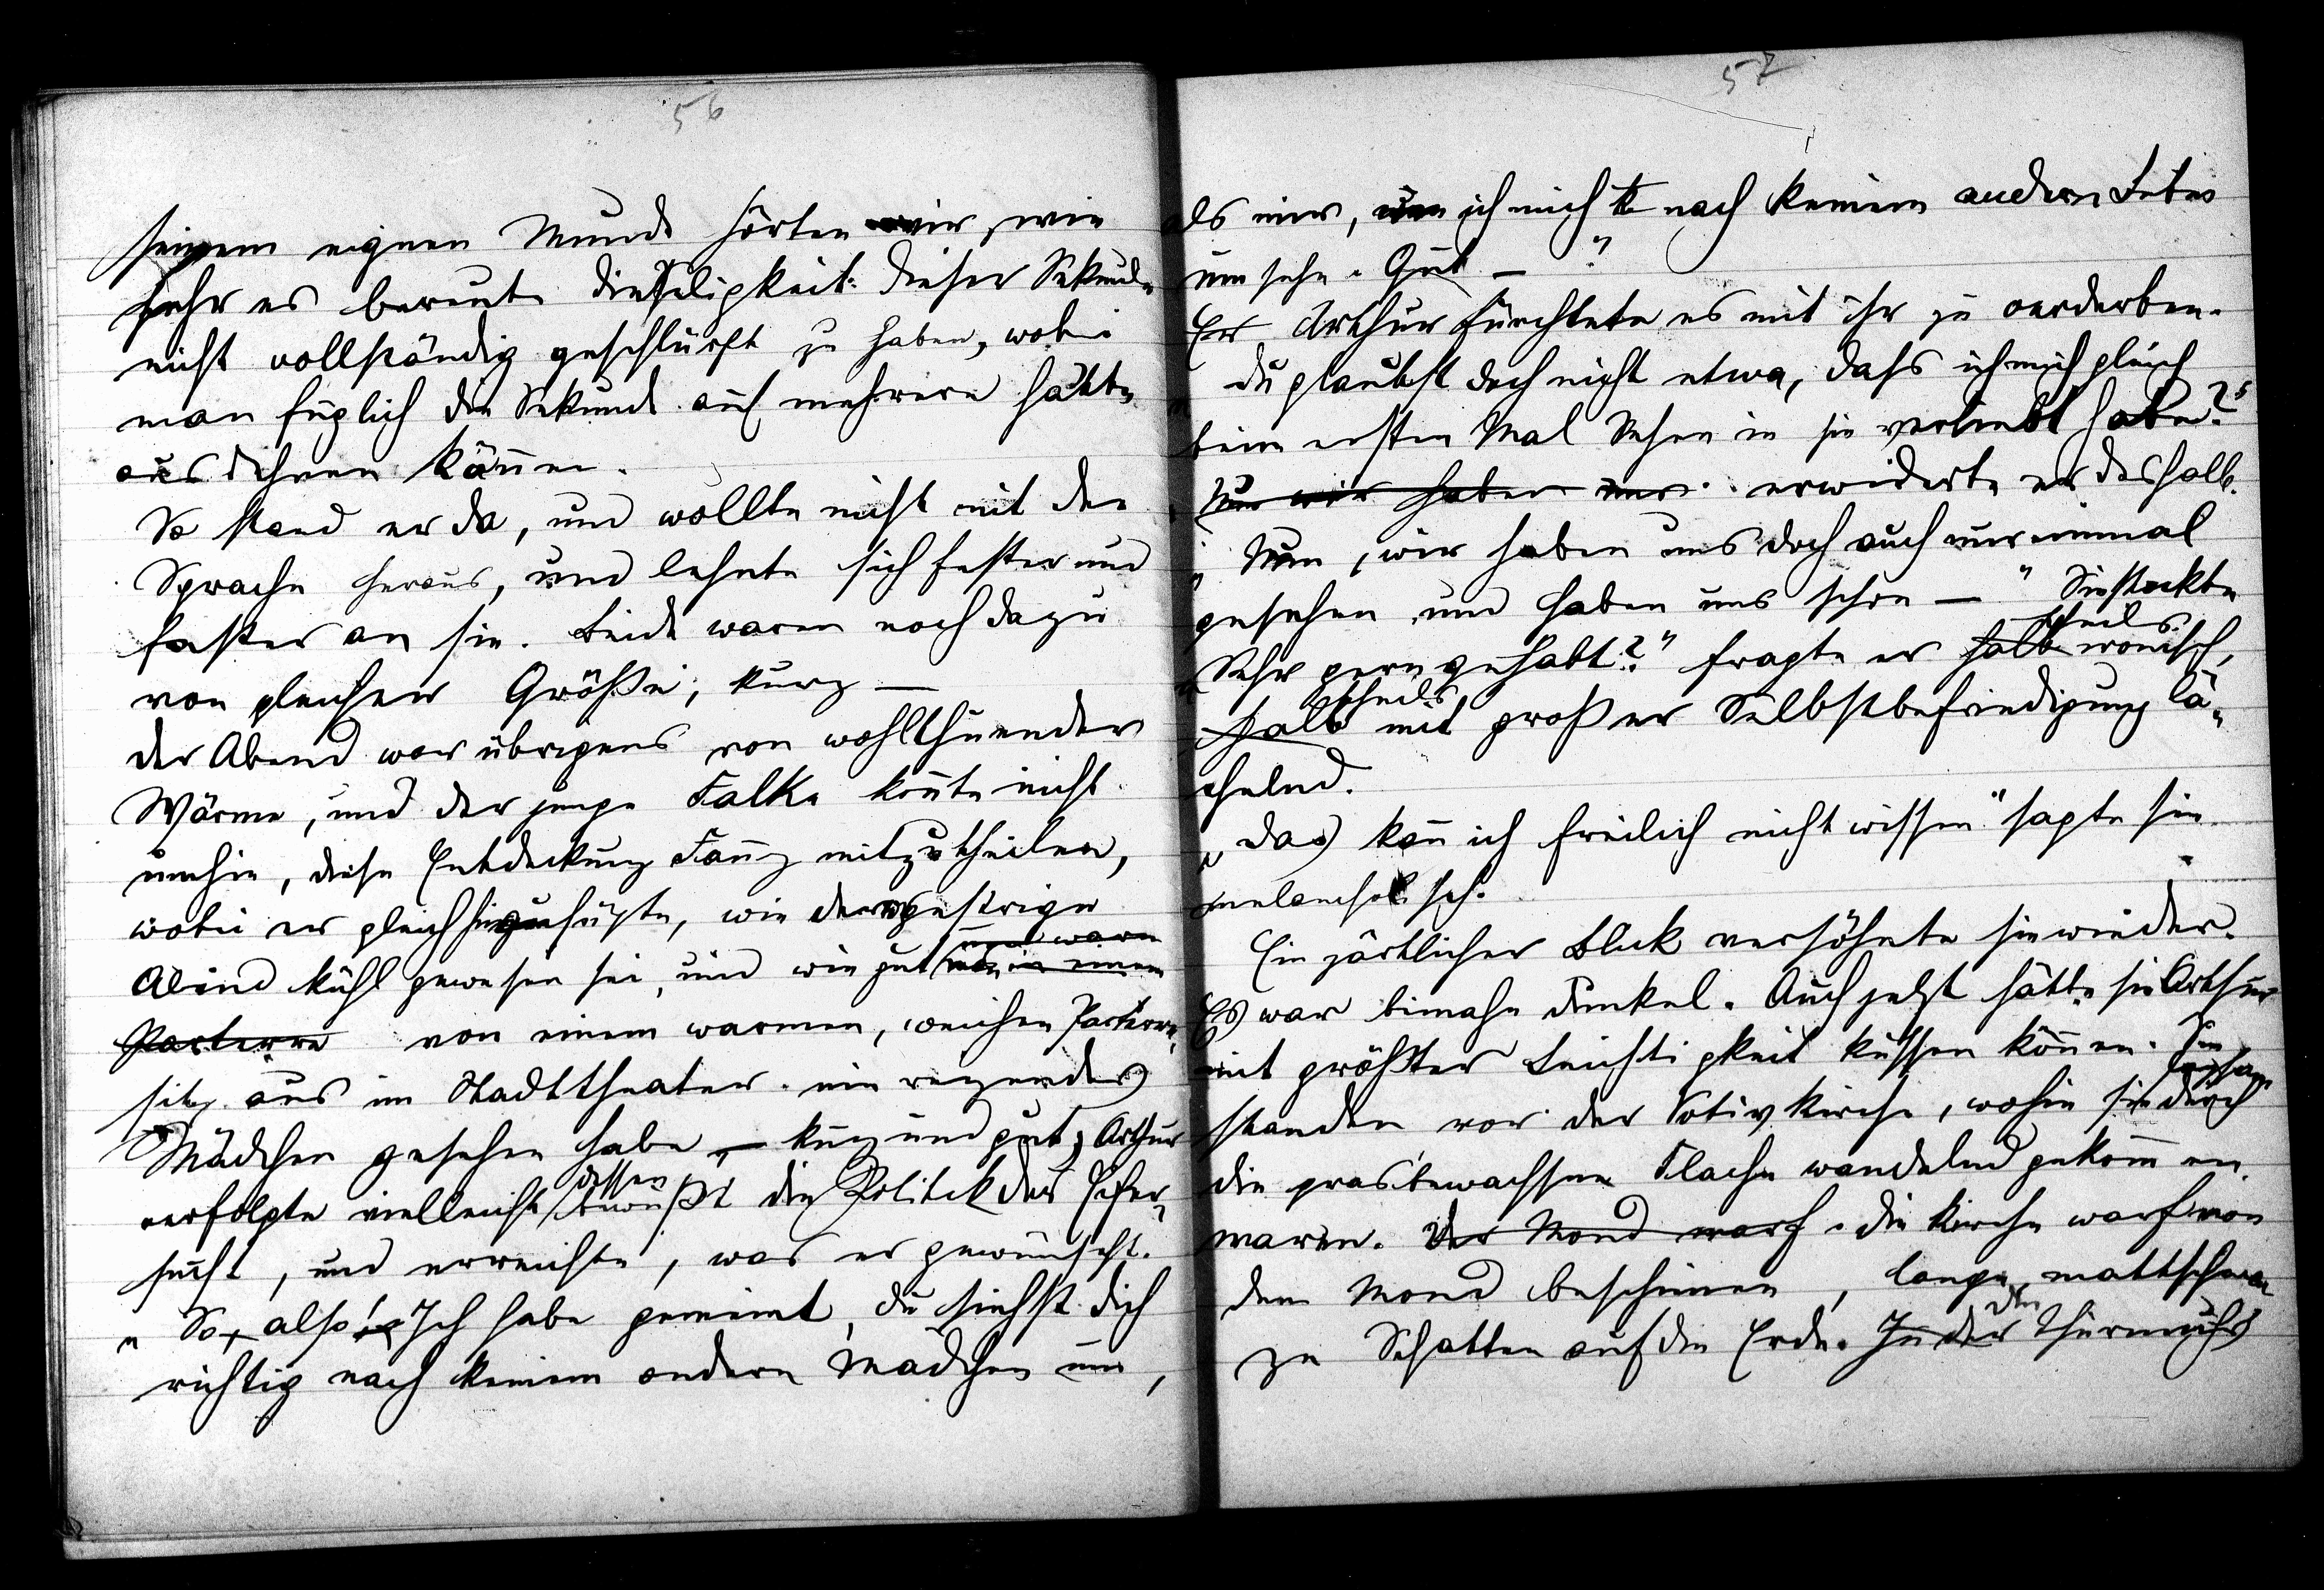 56
seinem eignen Munde hörten wir, wie
sehr es bereute die Seligkeit dieser Sekunde
nicht vollständig geschlürft zu haben, wobei
man füglich die Sekunde auf mehrere hätte
ausdehnen können.
So stand er da, und wollte nicht mit der
Sprache heraus, und lehnte sich fester und
fester an sie. Beide waren noch dazu
von gleicher Größe; kurz —
der Abend war übrigens von wohlthuender
Wärme, und der junge Falke konnte nicht
umhin, diese Entdeckung Fanny mitzutheilen,
wobei er gleich hinzufügte, wie der gestrige
Abend kühl gewesen sei, und wie gut
Parterre von einem warmen, weichen Parterre
sitz aus im Stadttheater ein reizendes
Mädchen gesehen habe — kurz und gut, Arthur
verfolgte vielleicht dessen bewußt die Politik der Eifer
sucht, und erreichte, was er gewünscht.
„So, also! Ich habe gemeint, du siehst dich
richtig nach keinem andern Mädchen um,
57
als mir, ich mich nach keinem andern
umsehe. Gut — "
Er Arthur fürchtete es mit ihr zu verderben.
„Du glaubst doch nicht etwa, dass ich mich gleich
beim ersten Mal Sehen in sie verliebt habe?"
Nun wir haben uns erwiderte er deshalb.
„Nun, wir haben uns doch auch nur einmal
gesehen und haben uns schon — " Sie stockte
„Sehr gern gehabt?" fragte er halb theils ironisch,
halb theils mit großer Selbstbefriedigung lä-
chelnd.
„Das kann ich freilich nicht wissen" sagte sie
melancholisch.
Ein zärtlicher Blick versöhnte sie wieder.
Es war beinahe dunkel. Auch jetzt hätte sie Arthur
mit größter Leichtigkeit küssen können. Sie
standen vor der Votivkirche, wohin sie langsam durch
die grasbewachsene Fläche wandelnd gekommen
waren. Der Mond warf. die Kirche warf von
dem Mond beschienen, lange, mattschwar
ze Schatten auf die Erde. In der den Thurmuhr